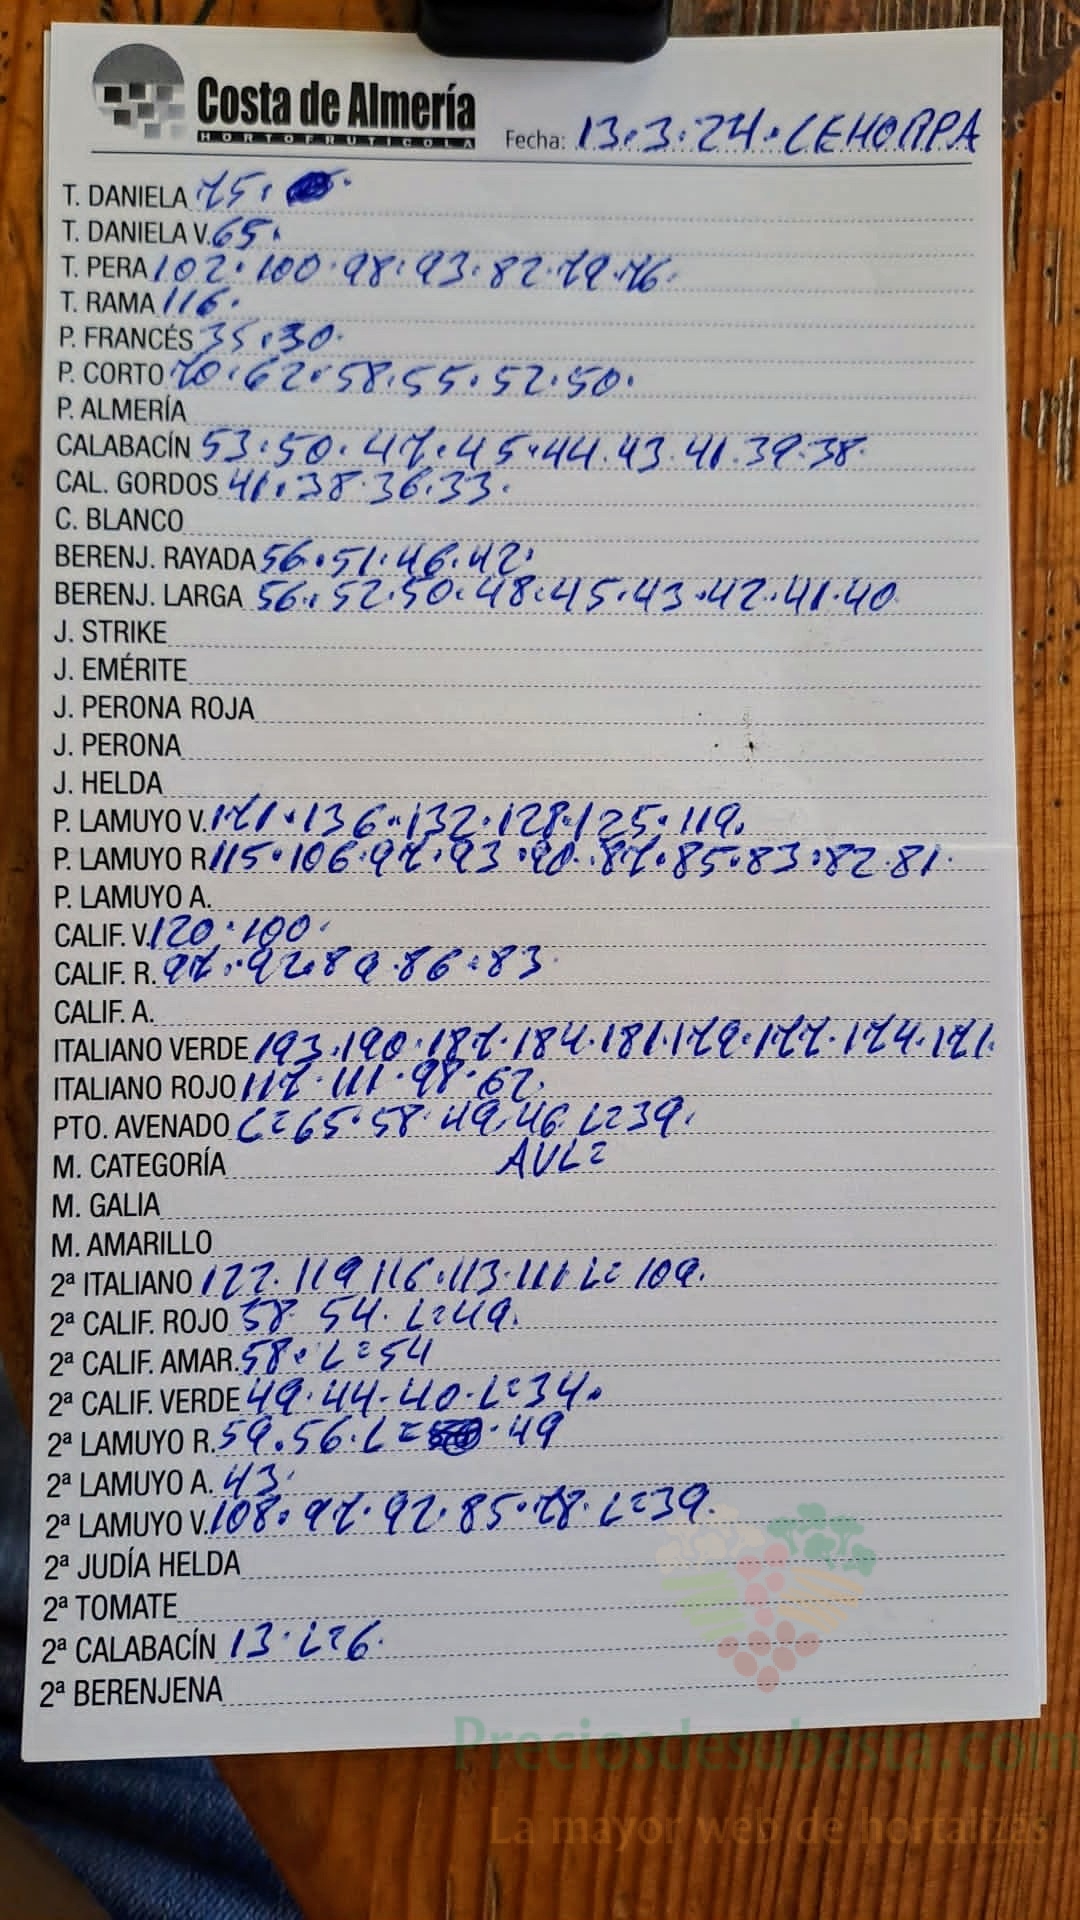 Costa de Almería
HORTOFRUTICOLA
Fecha: 13.3.24. CEHORPA
T. DANIELA 75.
T. DANIELA V. 65.
T. PERA 102. 100. 98. 93. 82. 79. 76.
T. RAMA 116.
P. FRANCÉS 35. 30.
P. CORTO 70. 62. 58. 55. 52. 50.
P. ALMERÍA
CALABACÍN 53. 50. 47. 45. 44. 43. 41. 39. 38.
CAL. GORDOS 41. 38. 36. 33.
C. BLANCO
BERENJ. RAYADA 56. 51. 46. 42.
BERENJ. LARGA 56. 52. 50. 48. 45. 43. 42. 41. 40
J. STRIKE
J. EMÉRITE
J. PERONA ROJA
J. PERONA
J. HELDA
P. LAMUYO V. 171. 136. 132. 128. 125. 119.
P. LAMUYO R 115. 106. 97. 93. 90. 87. 85. 83. 82. 81.
P. LAMUYO A.
CALIF. V. 120. 100.
CALIF. R. 97. 92. 89. 86. 83
CALIF. A.
ITALIANO VERDE 193. 190. 187. 184. 181. 179. 177. 174. 171.
ITALIANO ROJO 117. 111. 98. 62.
PTO. AVENADO L=65. 58. 49. 46. L=39.
M. CATEGORÍA AVL=
M. GALIA
M. AMARILLO
2ª ITALIANO 122. 119 116. 113. 111. L= 109.
2ª CALIF. ROJO 58. 54. L=49.
2ª CALIF. AMAR. 58. L=54
2ª CALIF. VERDE 49. 44. 40. L=34.
2ª LAMUYO R. 59. 56. L= 49
2ª LAMUYO A. 43.
2ª LAMUYO V. 108. 97. 92. 85. 78. L=39.
2ª JUDÍA HELDA
2ª TOMATE
2ª CALABACÍN 13. L=6.
2ª BERENJENA
Preciosdesubasta.com
La mayor web de hortalizas